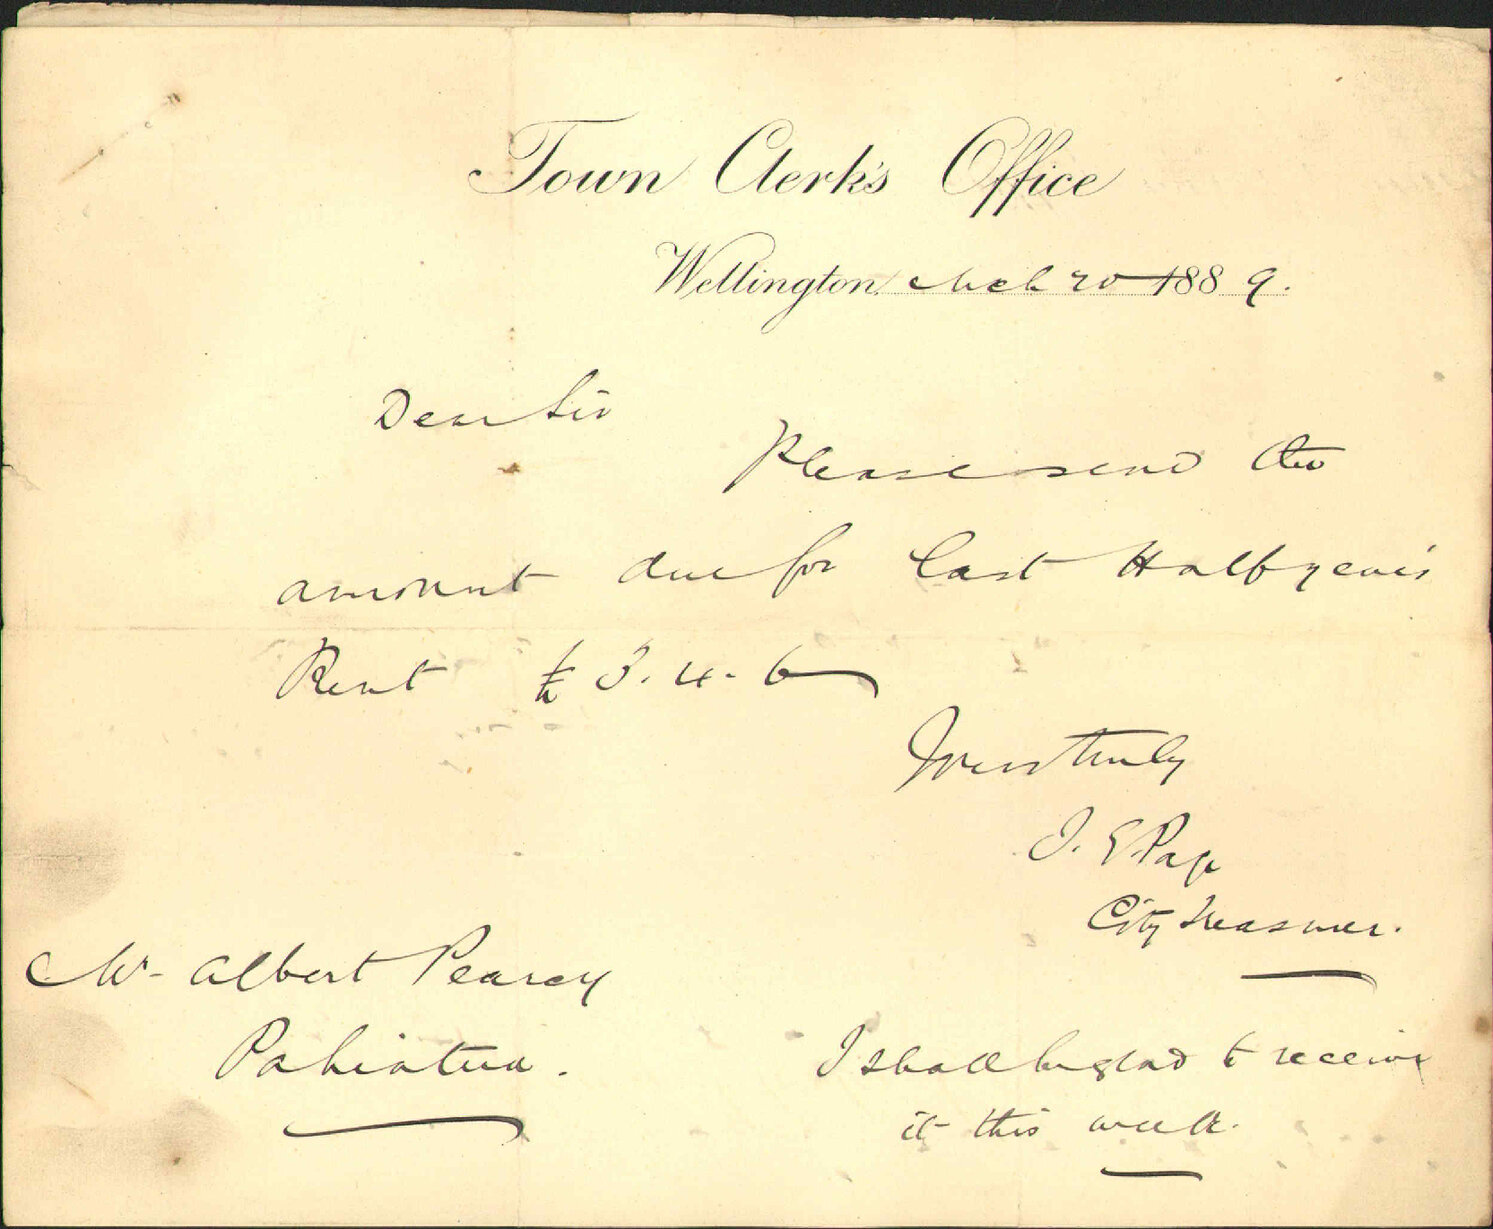 Town Clerk's Office
Wellington Mch 20 1889.
Dear Sir
Please send the
amount due for last Half year's
Rent £ 3. 4. 6
Yours truly
J. E. Page
City Treasurer.
Mr. Albert Pearcy
Pahiatua.
I shall be glad to receive
it this week.